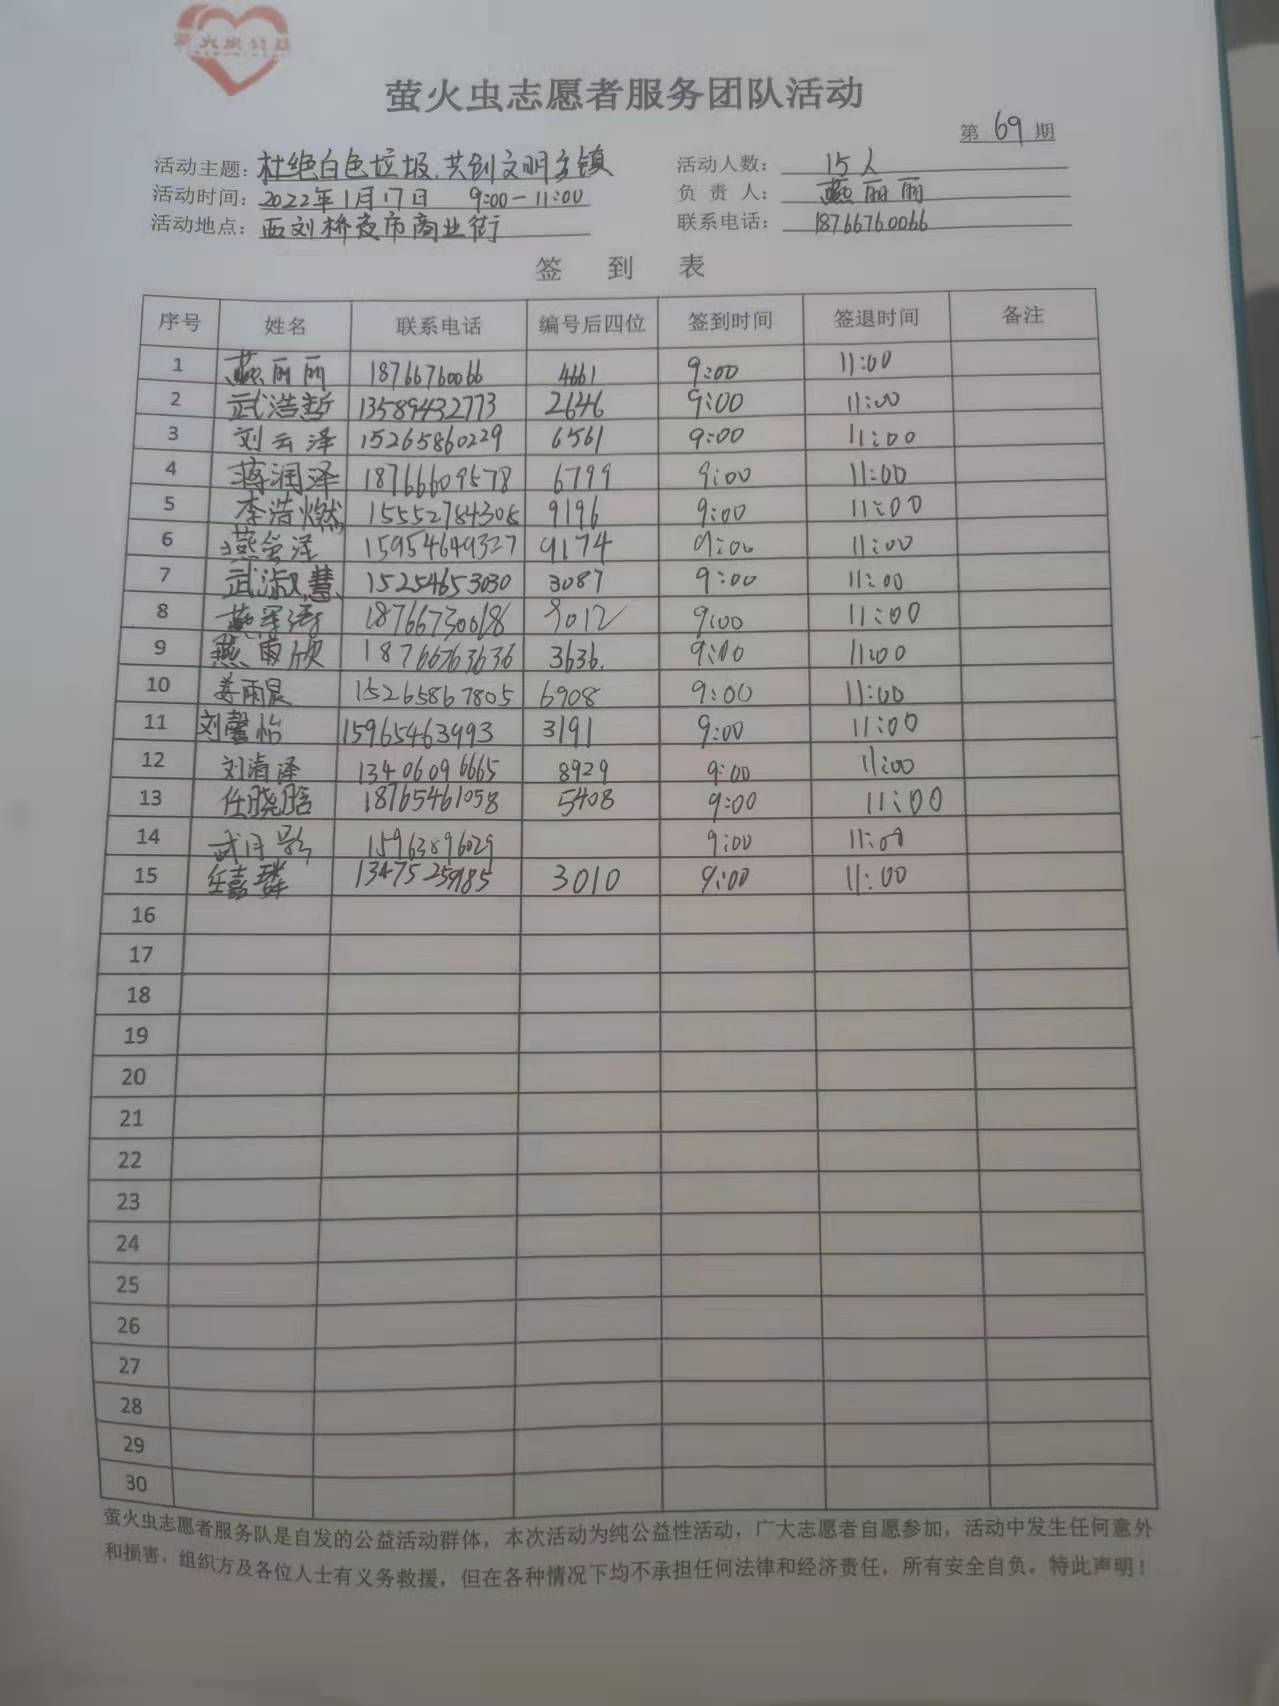 萤火虫公益
萤火虫志愿者服务团队活动
第 69 期
活动主题：杜绝白色垃圾、共创文明乡镇 活动人数： 15人
活动时间：2022年1月17日 9:00－11:00 负责人： 燕丽丽
活动地点：西刘桥夜市商业街 联系电话： 18766760066
签 到 表
序号 姓名 联系电话 编号后四位 签到时间 签退时间 备注
1 燕丽丽 18766760066 4661 9:00 11:00
2 武浩哲 13589432773 2646 9:00 11:00
3 刘云泽 15265860229 6561 9:00 11:00
4 蒋润泽 18766609578 6799 9:00 11:00
5 李浩燃 15552784308 9196 9:00 11:00
6 15954649327 9174 9:00 11:00
7 武淑慧 15254653030 3087 9:00 11:00
8 9012 9:00 11:00
9 燕雨欣 18766763636 3636. 9:00 11:00
10 姜雨晨 15265867805 6908 9:00 11:00
11 刘馨怡 15965463993 3191 9:00 11:00
12 刘清泽 13406096665 8929 9:00 11:00
13 任晓晗 18765461058 5408 9:00 11:00
14 15963896029 9:00 11:00
15 任嘉璘 13475259185 3010 9:00 11:00
16
17
18
19
20
21
22
23
24
25
26
27
28
29
30
萤火虫志愿者服务队是自发的公益活动群体，本次活动为纯公益性活动，广大志愿者自愿参加，活动中发生任何意外
和损害，组织方及各位人士有义务救援，但在各种情况下均不承担任何法律和经济责任，所有安全自负。特此声明！